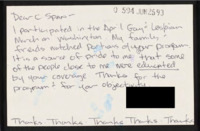 Dear C Span-
I participated in the April Gay & Lesbian
March on Washington. My family &
friends watched portions of your program
It is a source of pride to me that some
of the people close to me were educated
by your coverage. Thanks for the
program & for your objectivity.
Thanks Thanks Thanks Thanks Thanks